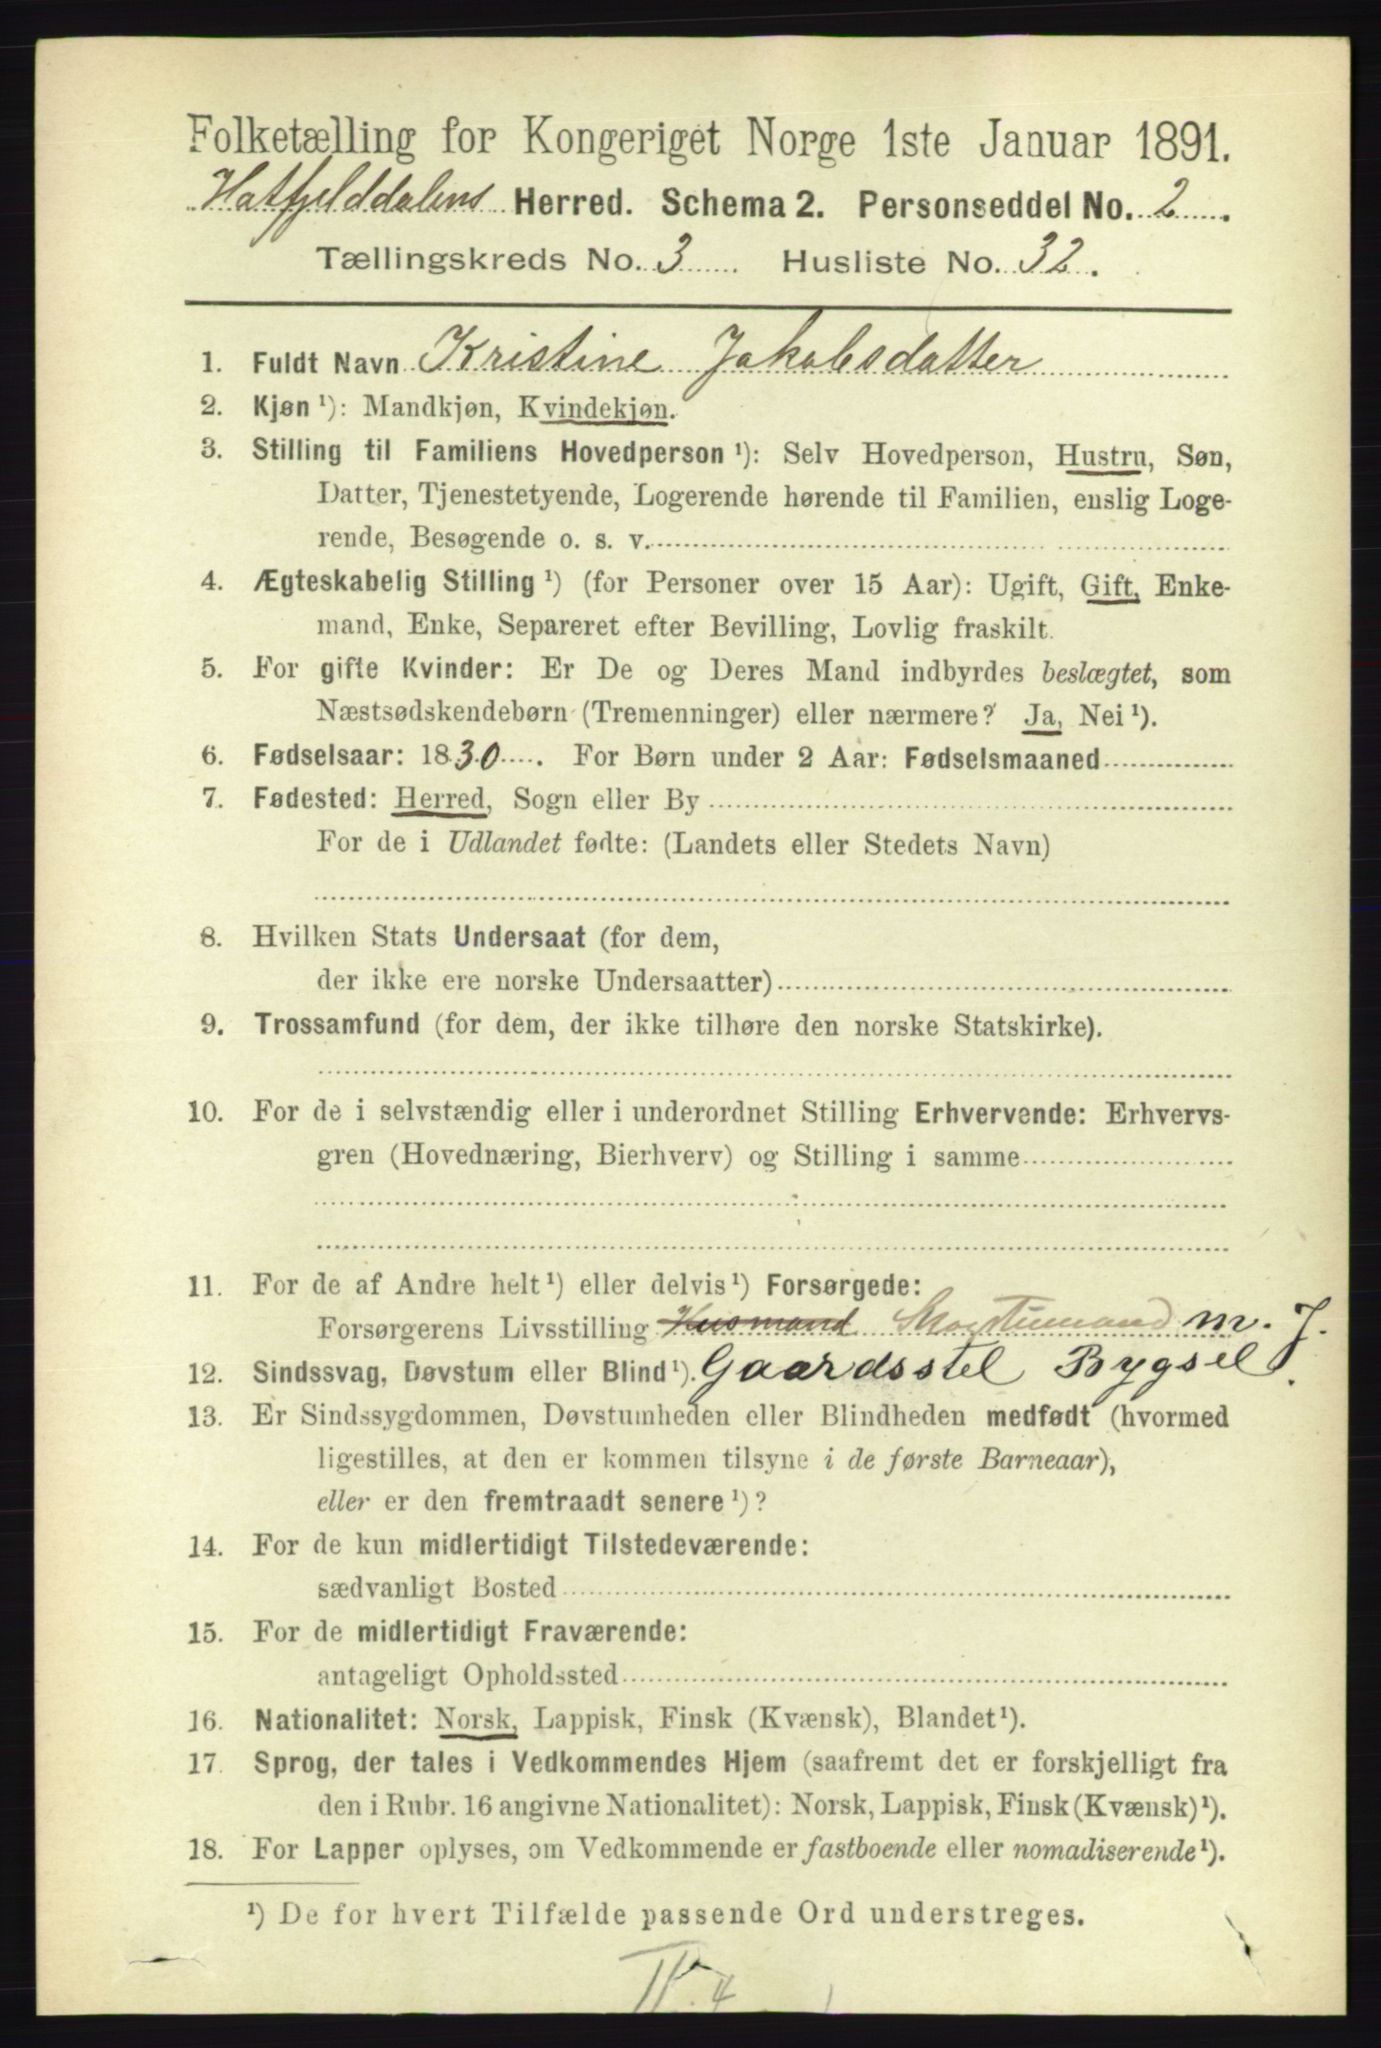 Folketælling for Kongeriget Norge 1ste Januar 1891.
Hatfjelddalens Herred. Schema 2. Personseddel No. 2
Tællingskreds No. 3 Husliste No. 32.
1. Fuldt Navn Kristine Jakobsdatter
2. Kjøn ¹): Mandkjøn, Kvindekjøn.
3. Stilling til Familiens Hovedperson ¹): Selv Hovedperson, Hustru, Søn,
Datter, Tjenestetyende, Logerende hørende til Familien, enslig Loge-
rende, Besøgende o. s. v.
4. Ægteskabelig Stilling ¹) (for Personer over 15 Aar): Ugift, Gift, Enke-
mand, Enke, Separeret efter Bevilling, Lovlig fraskilt.
5. For gifte Kvinder: Er De og Deres Mand indbyrdes beslægtet, som
Næstsødskendebørn (Tremenninger) eller nærmere? Ja, Nei ¹).
6. Fødselsaar: 1830. For Børn under 2 Aar: Fødselsmaaned
7. Fødested: Herred, Sogn eller By
For de i Udlandet fødte: (Landets eller Stedets Navn)
8. Hvilken Stats Undersaat (for dem,
der ikke ere norske Undersaatter)
9. Trossamfund (for dem, der ikke tilhøre den norske Statskirke).
10. For de i selvstændig eller i underordnet Stilling Erhvervende: Erhvervs-
gren (Hovednæring, Bierhverv) og Stilling i samme
11. For de af Andre helt ¹) eller delvis ¹) Forsørgede:
Forsørgerens Livsstilling Husmand m. J.
12. Sindssvag, Døvstum eller Blind ¹). Gaardsstel Bygsel
13. Er Sindssygdommen, Døvstumheden eller Blindheden medfødt (hvormed
ligestilles, at den er kommen tilsyne i de første Barneaar),
eller er den fremtraadt senere ¹)?
14. For de kun midlertidigt Tilstedeværende:
sædvanligt Bosted
15. For de midlertidigt Fraværende:
antageligt Opholdssted
16. Nationalitet: Norsk, Lappisk, Finsk (Kvænsk), Blandet ¹).
17. Sprog, der tales i Vedkommendes Hjem (saafremt det er forskjelligt fra
den i Rubr. 16 angivne Nationalitet): Norsk, Lappisk, Finsk (Kvænsk) ¹).
18. For Lapper oplyses, om Vedkommende er fastboende eller nomadiserende ¹).
¹) De for hvert Tilfælde passende Ord understreges.